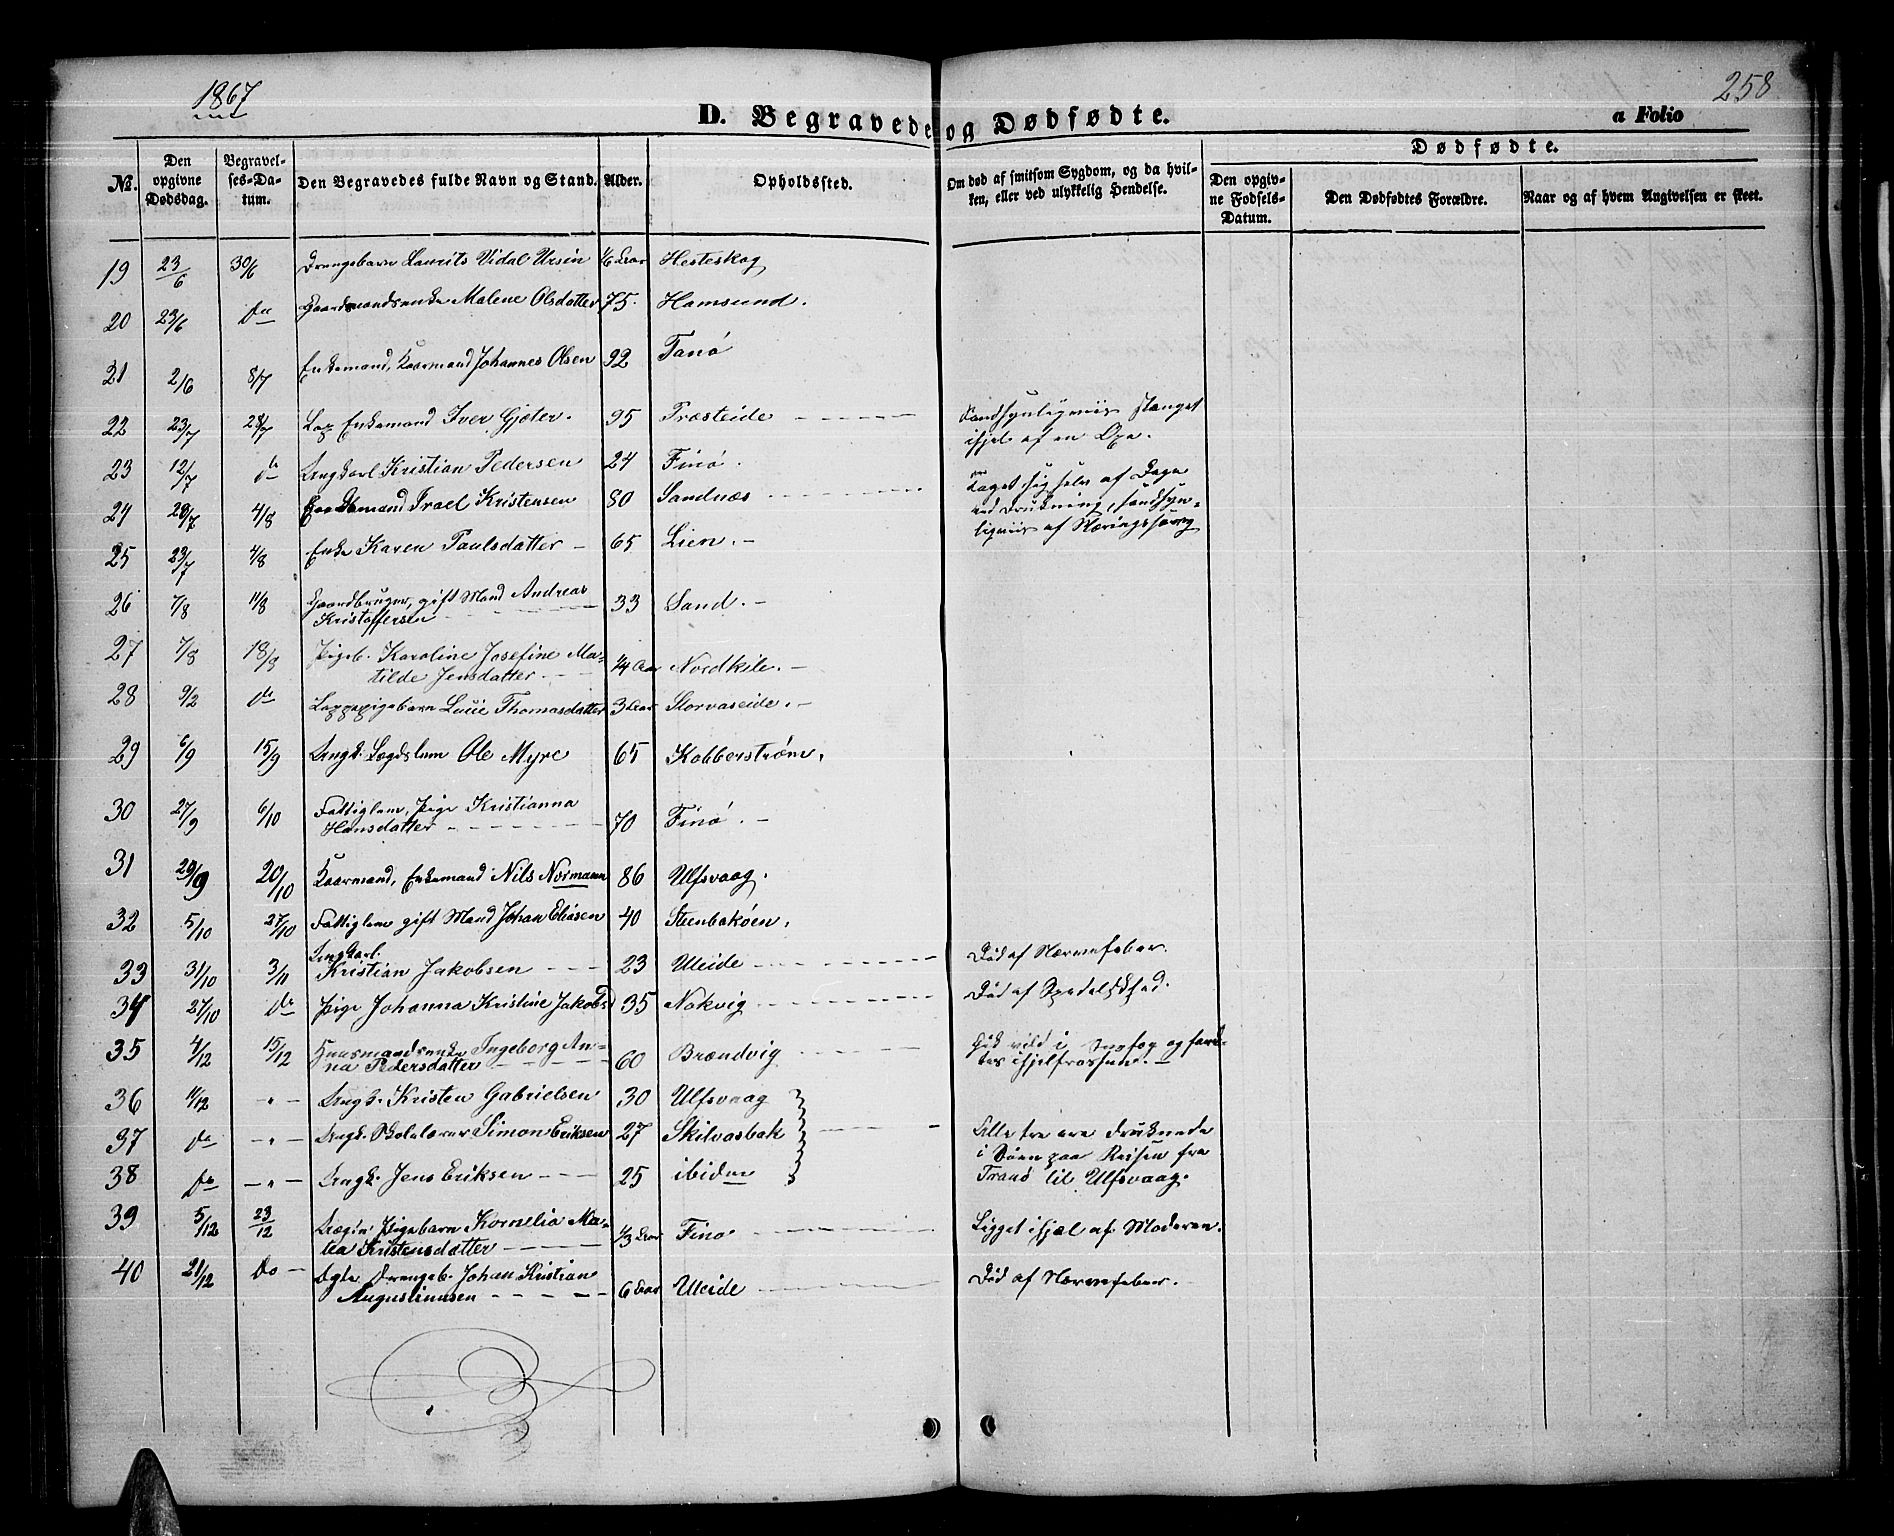 1867
258
D. Begravede og Dødfødte.
a Folio
Dødfødte.
No. Den opgivne Dødsdag. Begravelses-Datum. Den Begravedes fulde Navn og Stand. Alder. Opholdssted. Om død af smitsom Sygdom, og da hvilken, eller ved ulykkelig Hendelse. Den opgivne Fødsels-Datum. Den Dødfødtes Forældre. Naar og af hvem Angivelsen er skeet.
19 23/6 30/6 Drengebarn Laurits Vidal Ursin 1/6 Aar Hesteskog
20 23/6 do Gaardmandsenke Malene Olsdatter 75. Hamsund.
21 2/6 8/7 Enkemand, Kaarmand Johannes Olsen 92 Tanø
22 23/7 28/7 Lap Enkemand Iver Gjæter. 95 Træsteide Sandsynligviis stanget
ihjel af en Oxe.
23 12/7 do Ungkarl Kristian Pedersen 24 Finø.
24 28/7 4/8 Gaardmand Israel Kristensen 80 Sandnæs Taget sig selv af Dage
ved Drukning, sandsyn-
ligviis af Næringssorg
25 23/7 4/8 Enke Karen Paulsdatter 65 Lien.
26 7/8 11/8 Gaardbruger, gift Mand Andreas
Kristoffersen 33 Sand.
27 7/8 18/8 Pigeb. Karoline Josefine Ma-
tilde Jensdatter 1/4 Aar Nordkile.
28 9/2 do Lappepigebarn Lucie Thomasdatter 3 Aar Storvaseide.
29 6/9 15/9 Ungk. Lægdslem Ole Myre 65 Kobberstrøm.
30 27/9 6/10 Fattiglem, Pige Kristianna
Hansdatter 70 Finø.
31 29/9 20/10 Kaarmand, Enkemand Nils Normann 86 Ulfsvaag.
32 5/10 27/10 Fattiglem gift Mand Johan Eliasen 40 Stenbakøen.
33 31/10 3/11 Ungkarl.
Kristian Jakobsen 23 Uleide Død af Nærvefeber.
34 27/10 do Pige Johanna Kristine Jakobsd 35 Nokvig Død af Spedalskhed.
35 4/12 15/12 Huusmandsenke Ingeborg An-
na Pedersdatter 60 Brændvig Gik vild i Snefog og fand-
tes ihjelfrossen.
36 11/12 -"- Ungk. Kristen Gabrielsen 30 Ulfsvaag
37 do -"- Ungk. Skolelærer Simon Eriksen 27 Skilvasbak Alle tre ere druknede
i Søen paa Reisen fra
38 Do -"- Ungk. Jens Eriksen 25 ibidem Tranø til Ulfsvaag.
39 5/12 23/12 Uægte Pigebarn Kornelia Ma-
lea Kristensdatter 1/3 Aar Finø Ligget ihjel af Moderen.
40 21/12 Do Ægte Drengeb. Johan Kristian
Augustinusen 6 Aar Uleide Død af Nærvefeber.